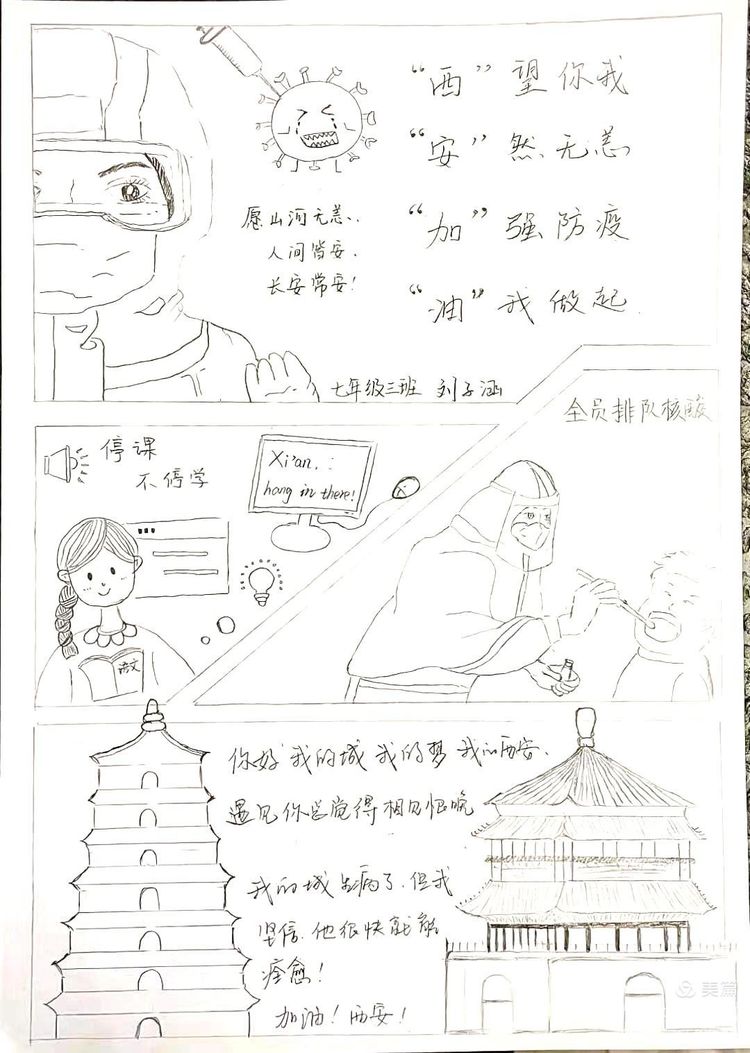 “西”望你我
“安”然无恙
“加”强防疫
“油”我做起
愿山河无恙、
人间皆安、
长安常安！
七年级三班 刘子涵
全员排队核酸
停课
不停学
Xi'an, :
hang in there!
语文
你好 我的城 我的梦 我的西安、
遇见你总觉得相见恨晚
我的城生病了、但我
坚信、他很快就能
痊愈！
加油！西安！
美篇